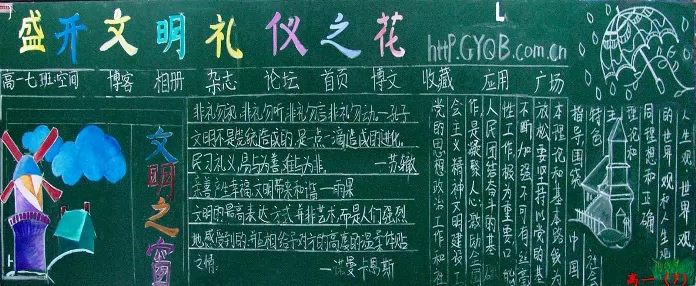 盛开文明礼仪之花
http.GYQB.com.cn
高一七班空间 博客 相册 杂志 论坛 首页 博文 收藏 应用 广场
文明之窗
非礼勿视,非礼勿听,非礼勿言,非礼勿动。—孔子
文明不是笼统造成的,是一点一滴造成的进化,
民习礼义,易与为善,难与为非。 —苏辙
亲善产生幸福,文明带来和谐—雨果
文明的最高表达方式并非艺术,而是人们强烈
地感受到的互相给予对方的高度的温柔体贴
之情。 —诺曼卡曷斯
人生观 世界观
的世界观和人生观
同理想和正确
理论和
主
特色
指导围绕
中国
社会
本理论和基本路线为
放松要坚持以党的基
不断加强不可有丝毫
性工作极为重要只能
人民团结奋斗的基
作是凝聚人心激励全国
会主义精神文明建设工
党的思想政治工作和社
高一(7)